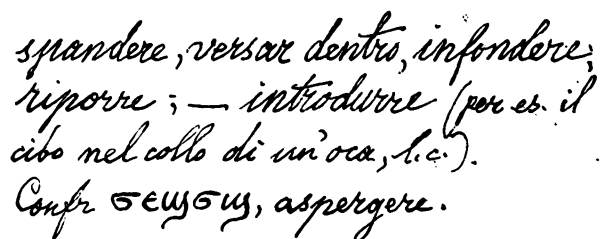 spandere, versar dentro, infondere;
riporre; — introdurre (per es. il
cibo nel collo di un'oca, l.c.).
Confr ϭⲉϣϭϣ, aspergere.